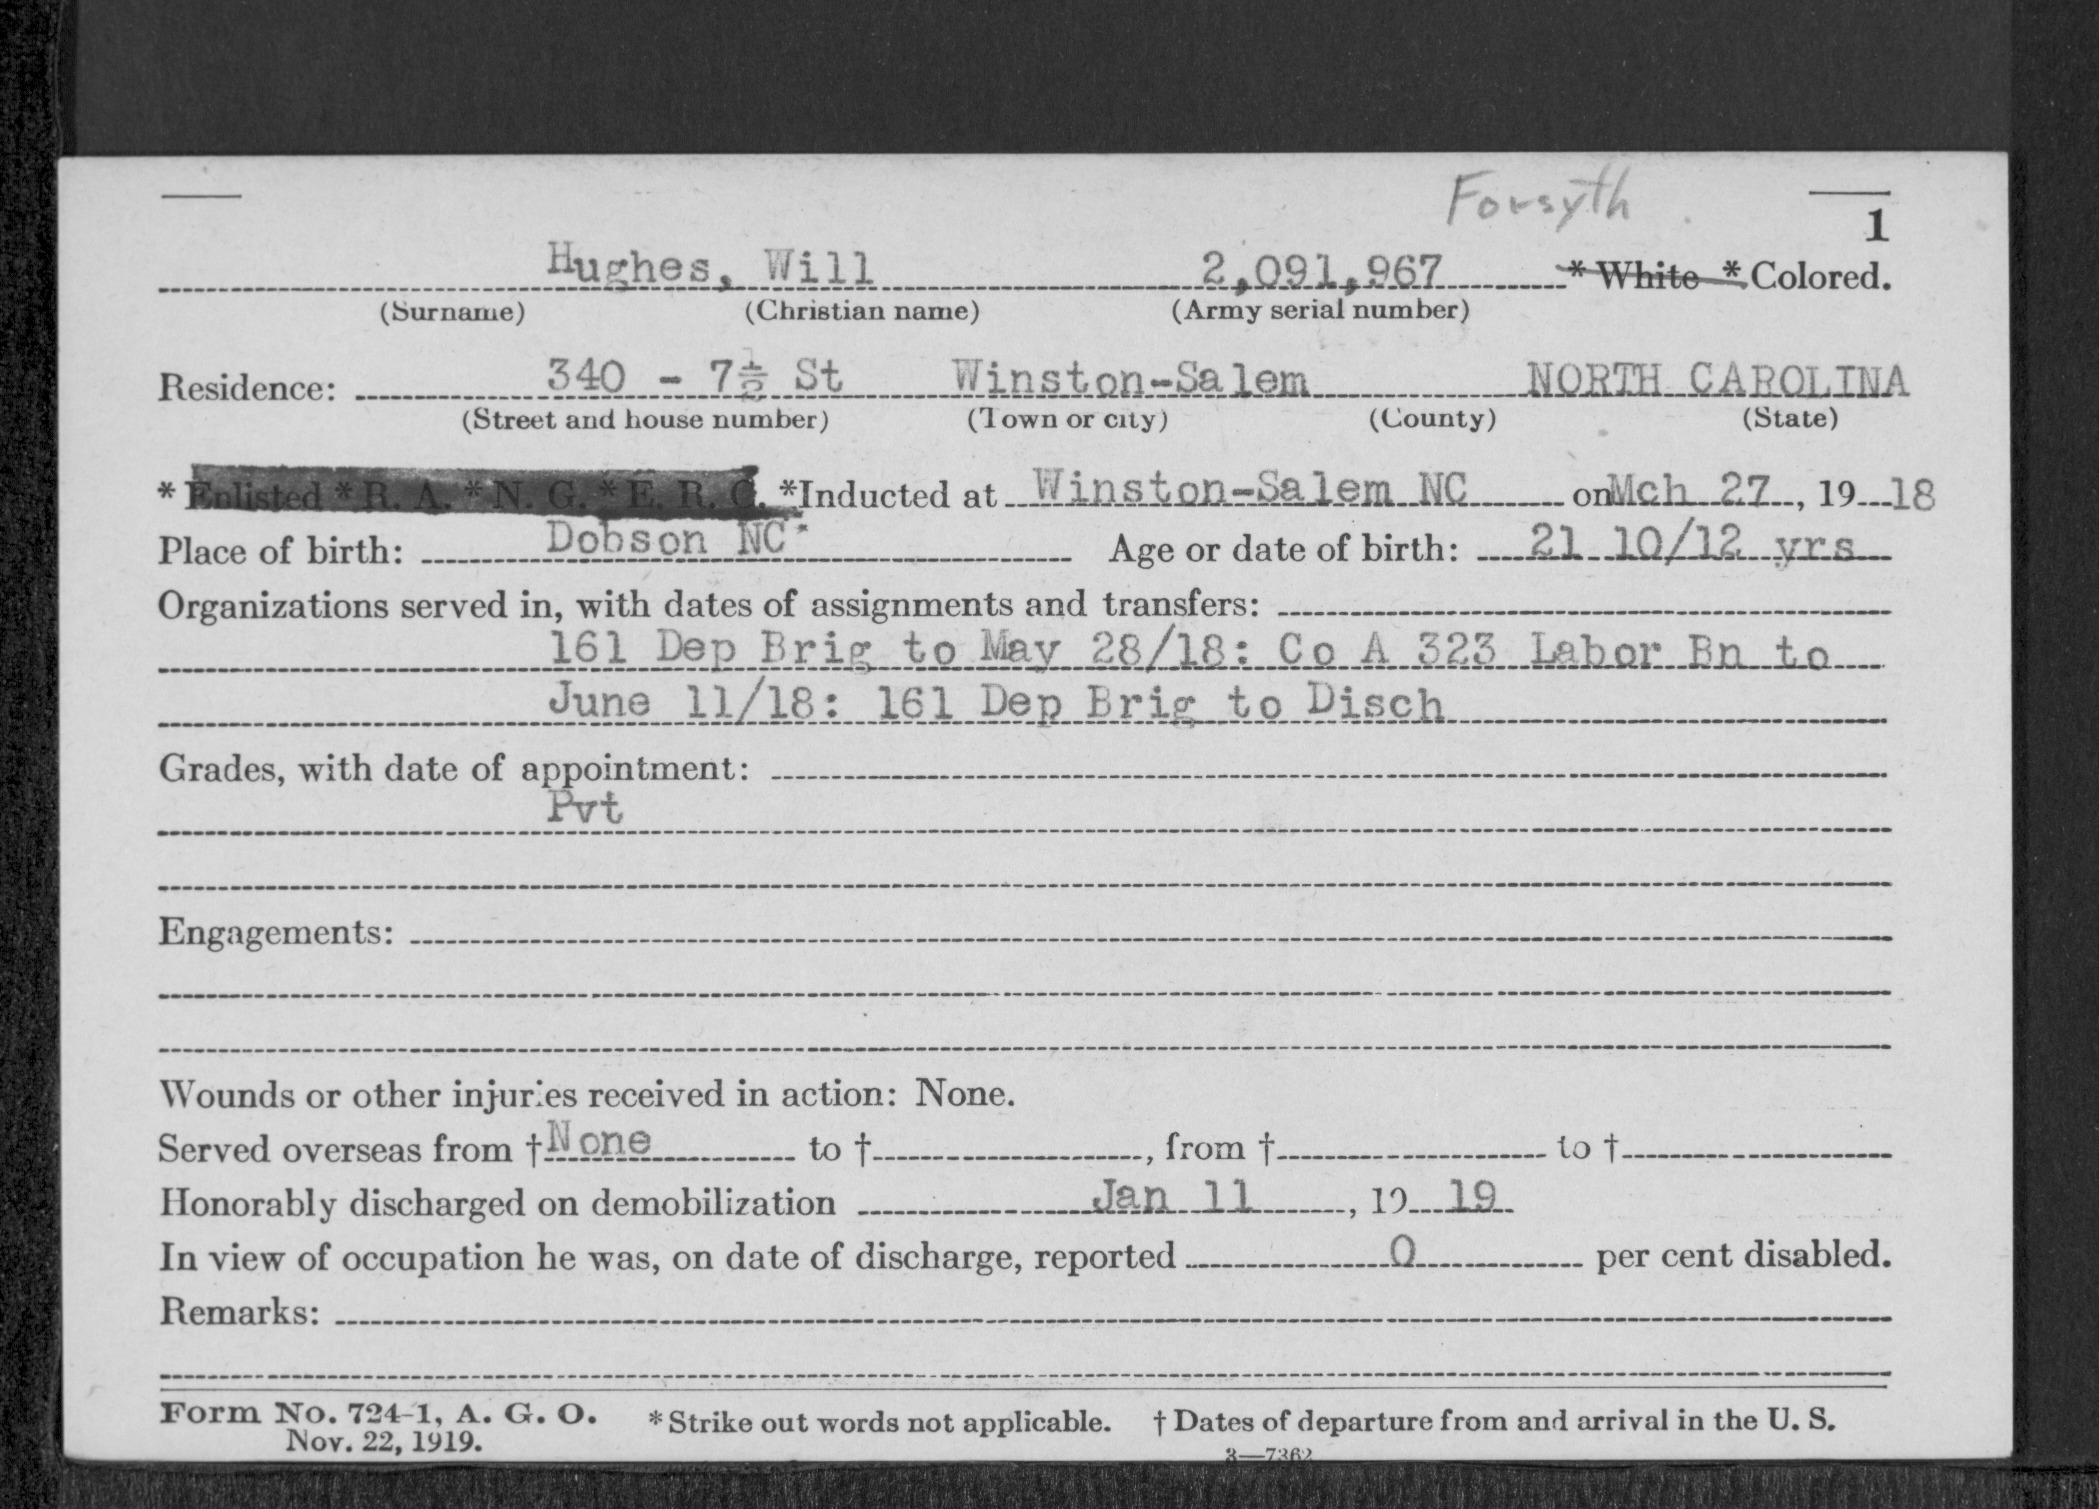 Forsyth
1
Hughes, Will 2,091,967 * White * Colored.
(Surname) (Christian name) (Army serial number)
Residence: 340 - 7½ St Winston-Salem NORTH CAROLINA
(Street and house number) (Town or city) (County) (State)
* Enlisted * R. A. * N. G. * E. R. C. *Inducted at Winston-Salem NC on Mch 27, 1918
Place of birth: Dobson NC Age or date of birth: 21 10/12 yrs
Organizations served in, with dates of assignments and transfers:
161 Dep Brig to May 28/18: Co A 323 Labor Bn to
June 11/18: 161 Dep Brig to Disch
Grades, with date of appointment:
Pvt
Engagements:
Wounds or other injuries received in action: None.
Served overseas from † None to †, from † to †
Honorably discharged on demobilization Jan 11, 19 19
In view of occupation he was, on date of discharge, reported 0 per cent disabled.
Remarks:
Form No. 724-1, A. G. O. * Strike out words not applicable. † Dates of departure from and arrival in the U. S.
Nov. 22, 1919. 3—7362